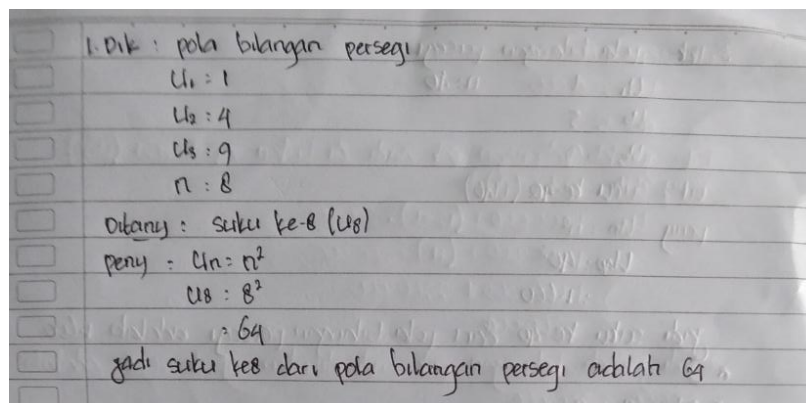 1. Dik : pola bilangan persegi
U₁ : 1
U₂ : 4
U₃ : 9
n : 8
Ditany : suku ke-8 (U8)
peny : Un = n²
U8 : 8²
: 64
jadi suku ke8 dari pola bilangan persegi adalah 64.